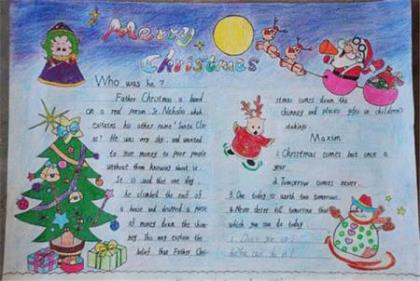 Merry
Christmas
Who was he?
Father Christmas is based
on a real person St. Nicholas which
explains his other name "Santa Cla-
us". He was very shy and wanted
to give money to poor people
without them knowing about it.
It is said that one day,
he climbed the roof of
a house and dropped a purse
of money down the chim-
ney. This may explain the
belief that Father Chri-
stmas comes down the
chimney and places gifts in children's
stockings
Maxim
1.Christmas comes but once a
year.
2.Tomorrow comes never.
3.One today is worth two tomorrows.
4.Never defer till tomorrow that
which you can do today.